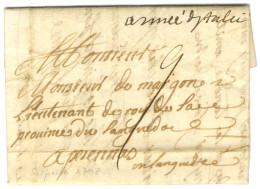 armée d'italie
A Monsieur
Monsieur de margon
Lieutenant de roy de la
province du languedoc
a pezenas
en languedoc